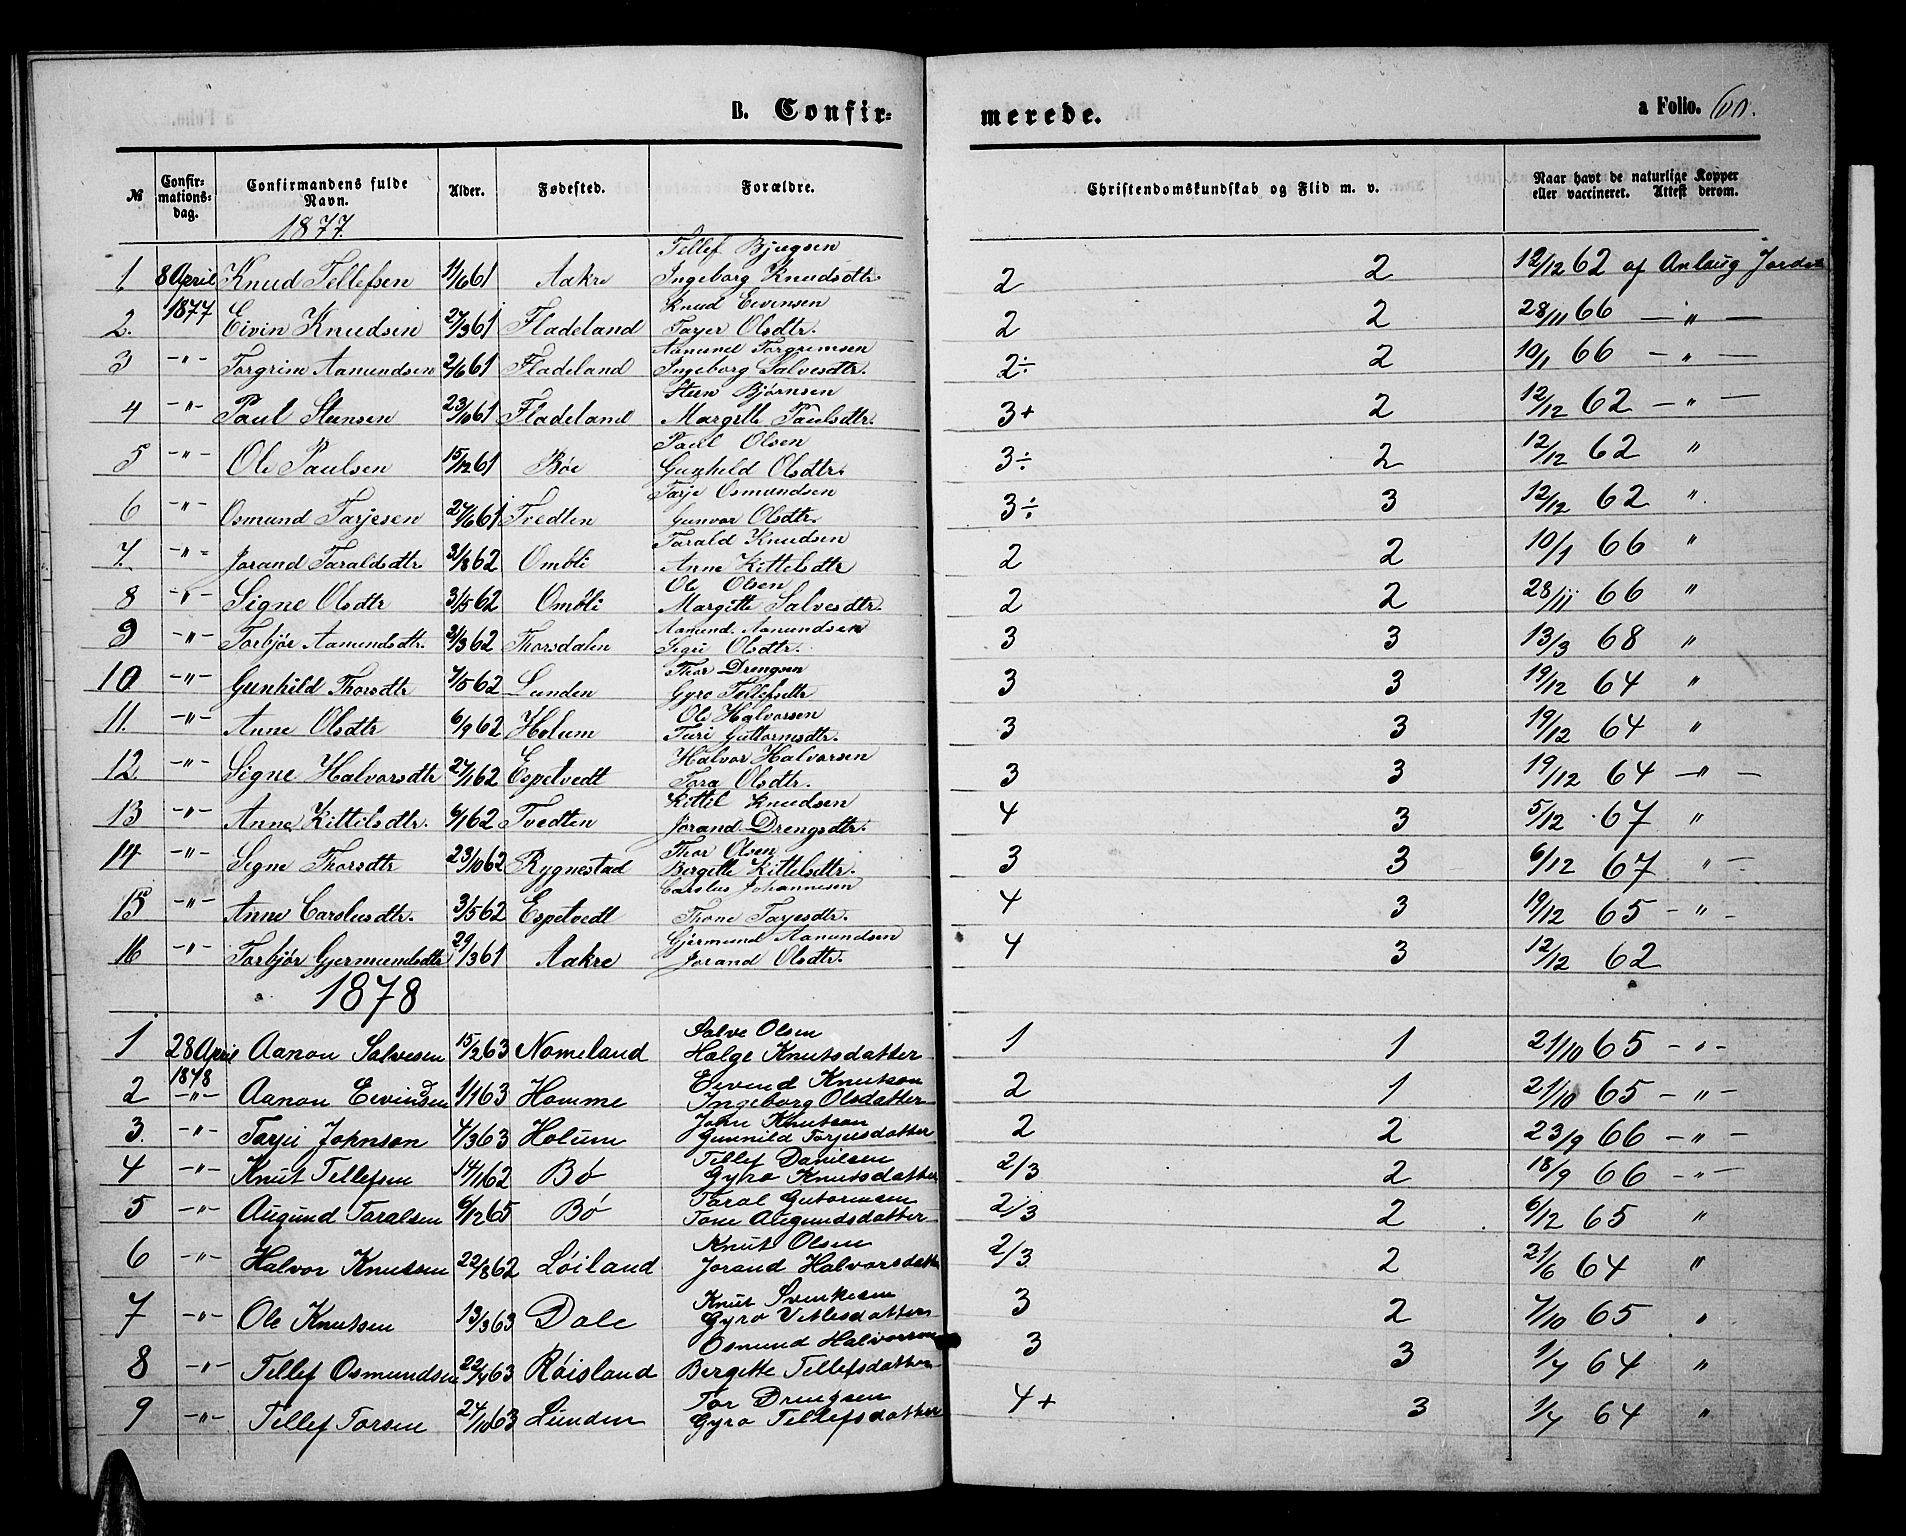 B. Confir-merede. a Folio. 60.
№ Confir-mations-dag. Confirmandens fulde Navn. Alder. Fødested. Forældre. Christendomskundskab og Flid m. v. Naar havt de naturlige Kopper eller vaccineret. Attest derom.
1877
Tellef Bjugsen
1 8 April Knud Tellefsen 11/6 61 Aakre Ingeborg Knudsdtr 2 2 12/12 62 af Anlaug Jorde
1877 Knud Eivinsen
2. Eivin Knudsen 27/3 61 Fladeland Tayer Olsdtr. 2 2 28/11 66 — " —
Aamund Torgrimsen
3 -"- Torgrim Aamundsen 2/6 61 Fladeland Ingeborg Salvesdtr. 2÷ 2 10/1 66 — " —
Steen Bjørnsen
4 -"- Paul Steensen 23/10 61 Fladeland Margitte Paulsdtr. 3+ 2 12/12 62 — " —
Paul Olsen
5 -"- Ole Paulsen 15/12 61 Bøe Gunhild Olsdtr. 3÷ 2 12/12 62 "
Tarje Osmundsen
6 -"- Osmund Tarjesen 27/6 61 Tvedten Gunvor Olsdtr. 3÷ 3 12/12 62 "
Tarald Knudsen
7. -"- Jorand Taraldsdtr 31/8 62 Ombli Anne Kittilsdtr 2 2 10/1 66 "
Ole Olsen
8 -"- Signe Olsdtr 3/5 62 Ombli Margitte Salvesdtr. 2 2 28/11 66 "
Aamund Aamundsen
9 -"- Torbjør Aamundsdtr. 2/3 62 Thorsdalen Sigri Olsdtr. 3 3 13/3 68 "
Thor Drengsen
10 -"- Gunhild Thorsdtr 7/5 62 Lunden Gyro Tellefsdtr 3 3 19/12 64 "
Ole Halvorsen
11. -"- Anne Olsdtr 6/9 62 Holum Turi Guttormsdtr. 3 3 19/12 64 "
Halvor Halvorsen
12 -"- Signe Halvorsdtr 27/1 62 Espetvedt Tora Olsdtr. 3 3 19/12 64 — " —
Kittil Knudsen
13 -"- Anne Kittilsdtr. 6/1 62 Tvedten Jorand Drengsdtr. 4 3 5/12 67 "
Thor Olsen
14 -"- Signe Thorsdtr 23/10 62 Rygnestad Bergitte Kittelsdtr. 3 3 6/12 67 " —
Carslus Johannesen
15 -"- Anne Carslusdtr. 3/5 62 Espetvedt Thone Tayesdtr. 4 3 19/12 65 — " —
Gjermund Aamundsen
16 -"- Torbjør Gjermundsdtr 29/3 61 Aakre Jorand Olsdtr. 4 3 12/12 62
1878
Salve Olsen
1 28 April Aanon Salvesen 15/2 63 Nomeland Hælge Knutsdatter 1 1 21/10 65 - " -
1878 Eivind Knutson
2 -"- Aanon Eivindsen 1/1 63 Homme Ingeborg Olsdatter 2 1 21/10 65 - " -
John Knutson
3. -"- Tarjei Johnson 4/3 63 Holum Gunnild Torjusdatter 2 2 23/9 66 - " -
Tellef Danilsen
4 -"- Knut Tellefsen 14/1 62 Bø Gyro Knutsdatter 2/3 2 18/9 66 - " -
Taral Gutormsen
5 -"- Augund Taralsen 6/12 65 Bø Tone Augundsdatter 2/3 2 6/12 65 "
Knut Olsen
6 -"- Halvor Knutson 22/8 62 Løiland Jorand Halvorsdatter 2/3 2 21/6 64 "
Knut Svenkesen
7 -"- Ole Knutsen 13/3 63 Dale Gyro Vetlesdatter 3 2 7/10 65 "
Osmund Halvorson
8 -"- Tellef Osmundsen 22/4 63 Røisland Bergitte Tellefsdatter 3 3 1/7 64 "
Tor Drengsen
9 -"- Tellef Torsen 24/10 63 Lunden Gyro Tellefsdatter 4+ 3 1/7 64 "